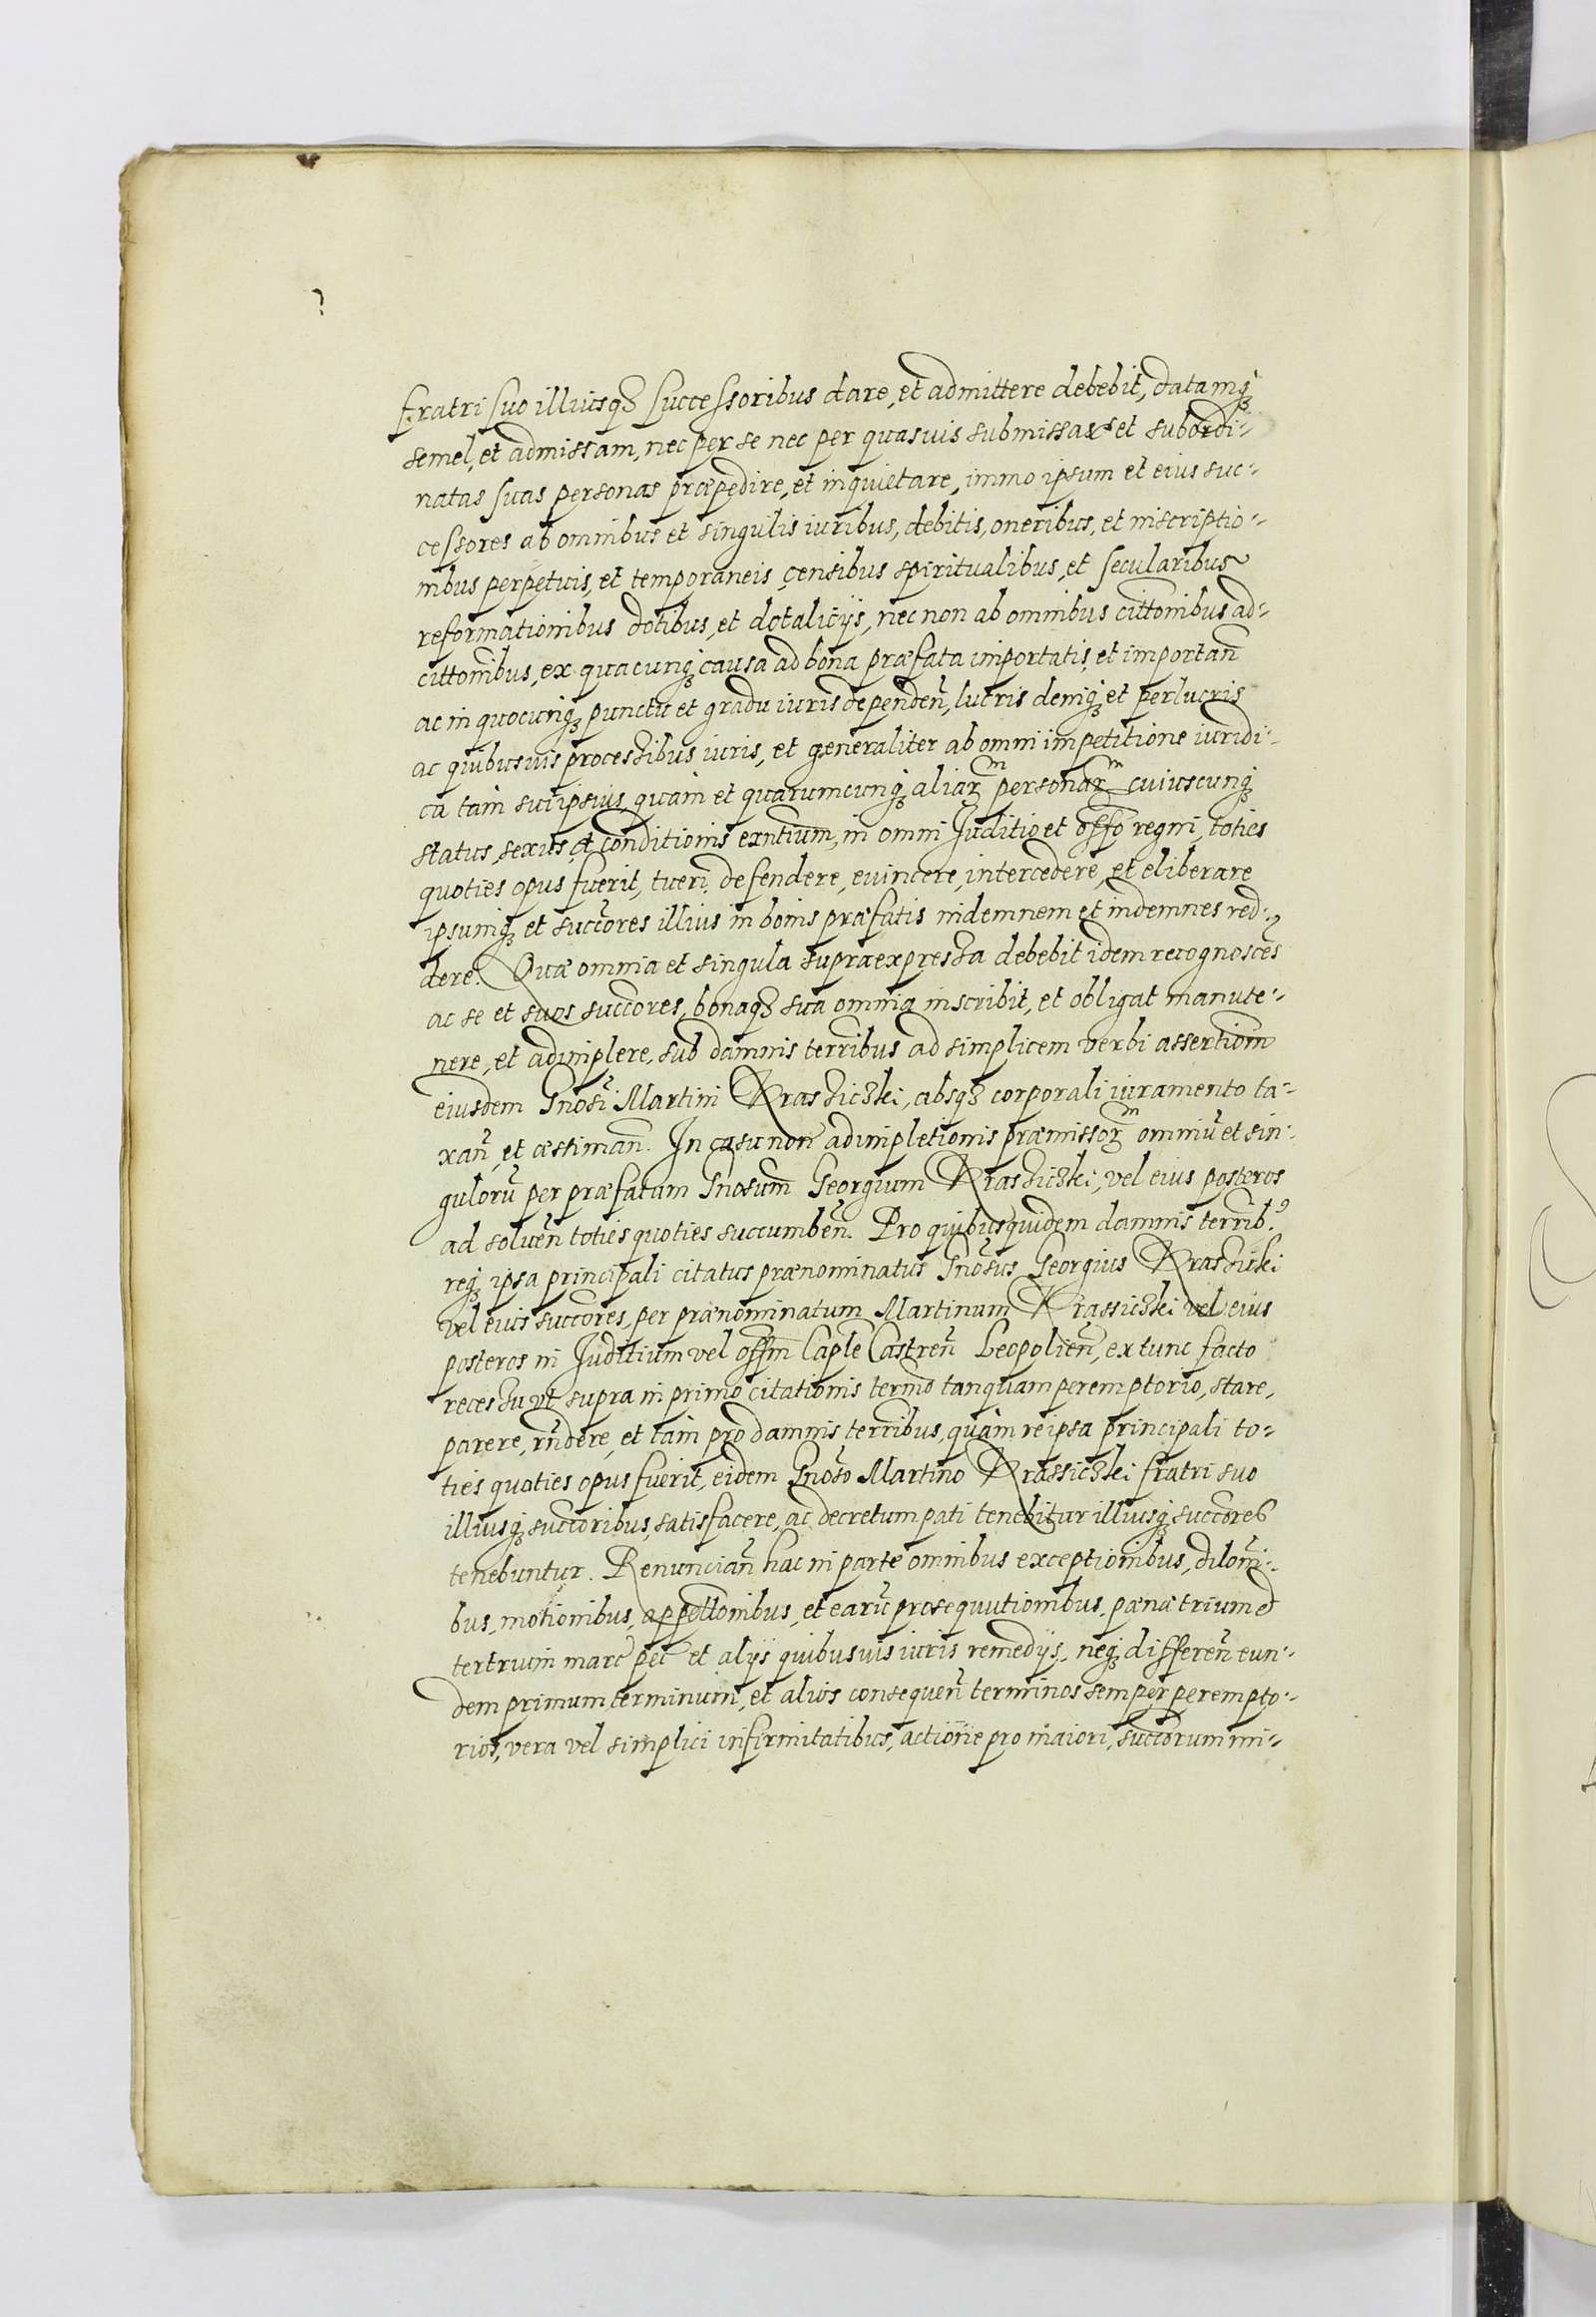 fratri suo illiusq3 successoribus dare, et admittere debebit, datamq3
semel, et admissam, nec per se nec per quasuis submissas et subordi-
natas suas personas præpedire, et inquietare, immo ipsum et eius suc-
cessores ab omnibus et singulis iuribus, debitis, oneribus, et inscriptio-
nibus perpetuis, et temporaneis, censibus spiritualibus, et secularibus
reformationibus dotibus, et dotalicijs, nec non ab omnibus cittonibus ad-
cittonibus, ex quacunq3 causa ad bona præfata importatis, et importan̄
ac in quocunq3 punctu et gradu iuris dependen̄, lucris deniq3 et perlucris
ac quibusuis processibus iuris, et generaliter ab omni impetitione iuridi-
ca tam sui ipsius, quam et quarumcunq3 aliarm personarm cuiuscunq3
status, sexus, et conditionis exn̄tium, in omni Juditio et offō regni, toties
quoties opus fuerit, tueri, defendere, euincere, intercedere, et eliberare
ipsumq3 et succōres illius in bonis præfatis indemnem et indemnes red-
dere. Quæ omnia et singula supraexpressa debebit idem recognoscēs
ac se et suos succōres, bonaq3 sua omnia inscribit, et obligat manute-
nere, et adimplere, sub damnis terrībus ad simplicem verbi assertiōm
eiusdem Gnōsi Martini Krasiczki, absq3 corporali iuramento ta-
xan̄, et æstiman̄. In casu non adimpletionis præmissorm omniū et sin-
gulorū per præfatum Gnōsum Georgium Krasiczki, vel eius posteros
ad soluen̄ toties quoties succumben̄. Pro quibusquidem damnis terrīb9
req3 ipsa principali citatus prænominatus Gnōsus Georgius Krasicki
vel eius succōres, per prænominatum Martinum Krassiczki vel eius
posteros in Juditium vel offm̄ Caplē Castren̄ Leopolien̄, ex tunc facto
recessu vt supra in primo citationis termō tanquam peremptorio, stare,
parere, rn̄dere, et tam pro damnis terrībus, quàm re ipsa principali to-
ties quoties opus fuerit, eidem Gnōso Martino Krassiczki fratri suo
illiusq3 succōribus, satisfacere, ac decretum pati tenebitur illiusq3 succōres
tenebuntur. Renuncian̄ hac in parte omnibus exceptionibus, dilōni-
bus, motionibus, appellōnibus, et earū prosequutionibus, pænæ trium
tertrium marc̄ pec̄ et alijs quibusuis iuris remedijs, neq3 differen̄ eun-
dem primum terminum, et alios consequen̄ terminos semper perempto-
rios, vera vel simplici infirmitatibus, actiōne pro maiori, succōrum mi-